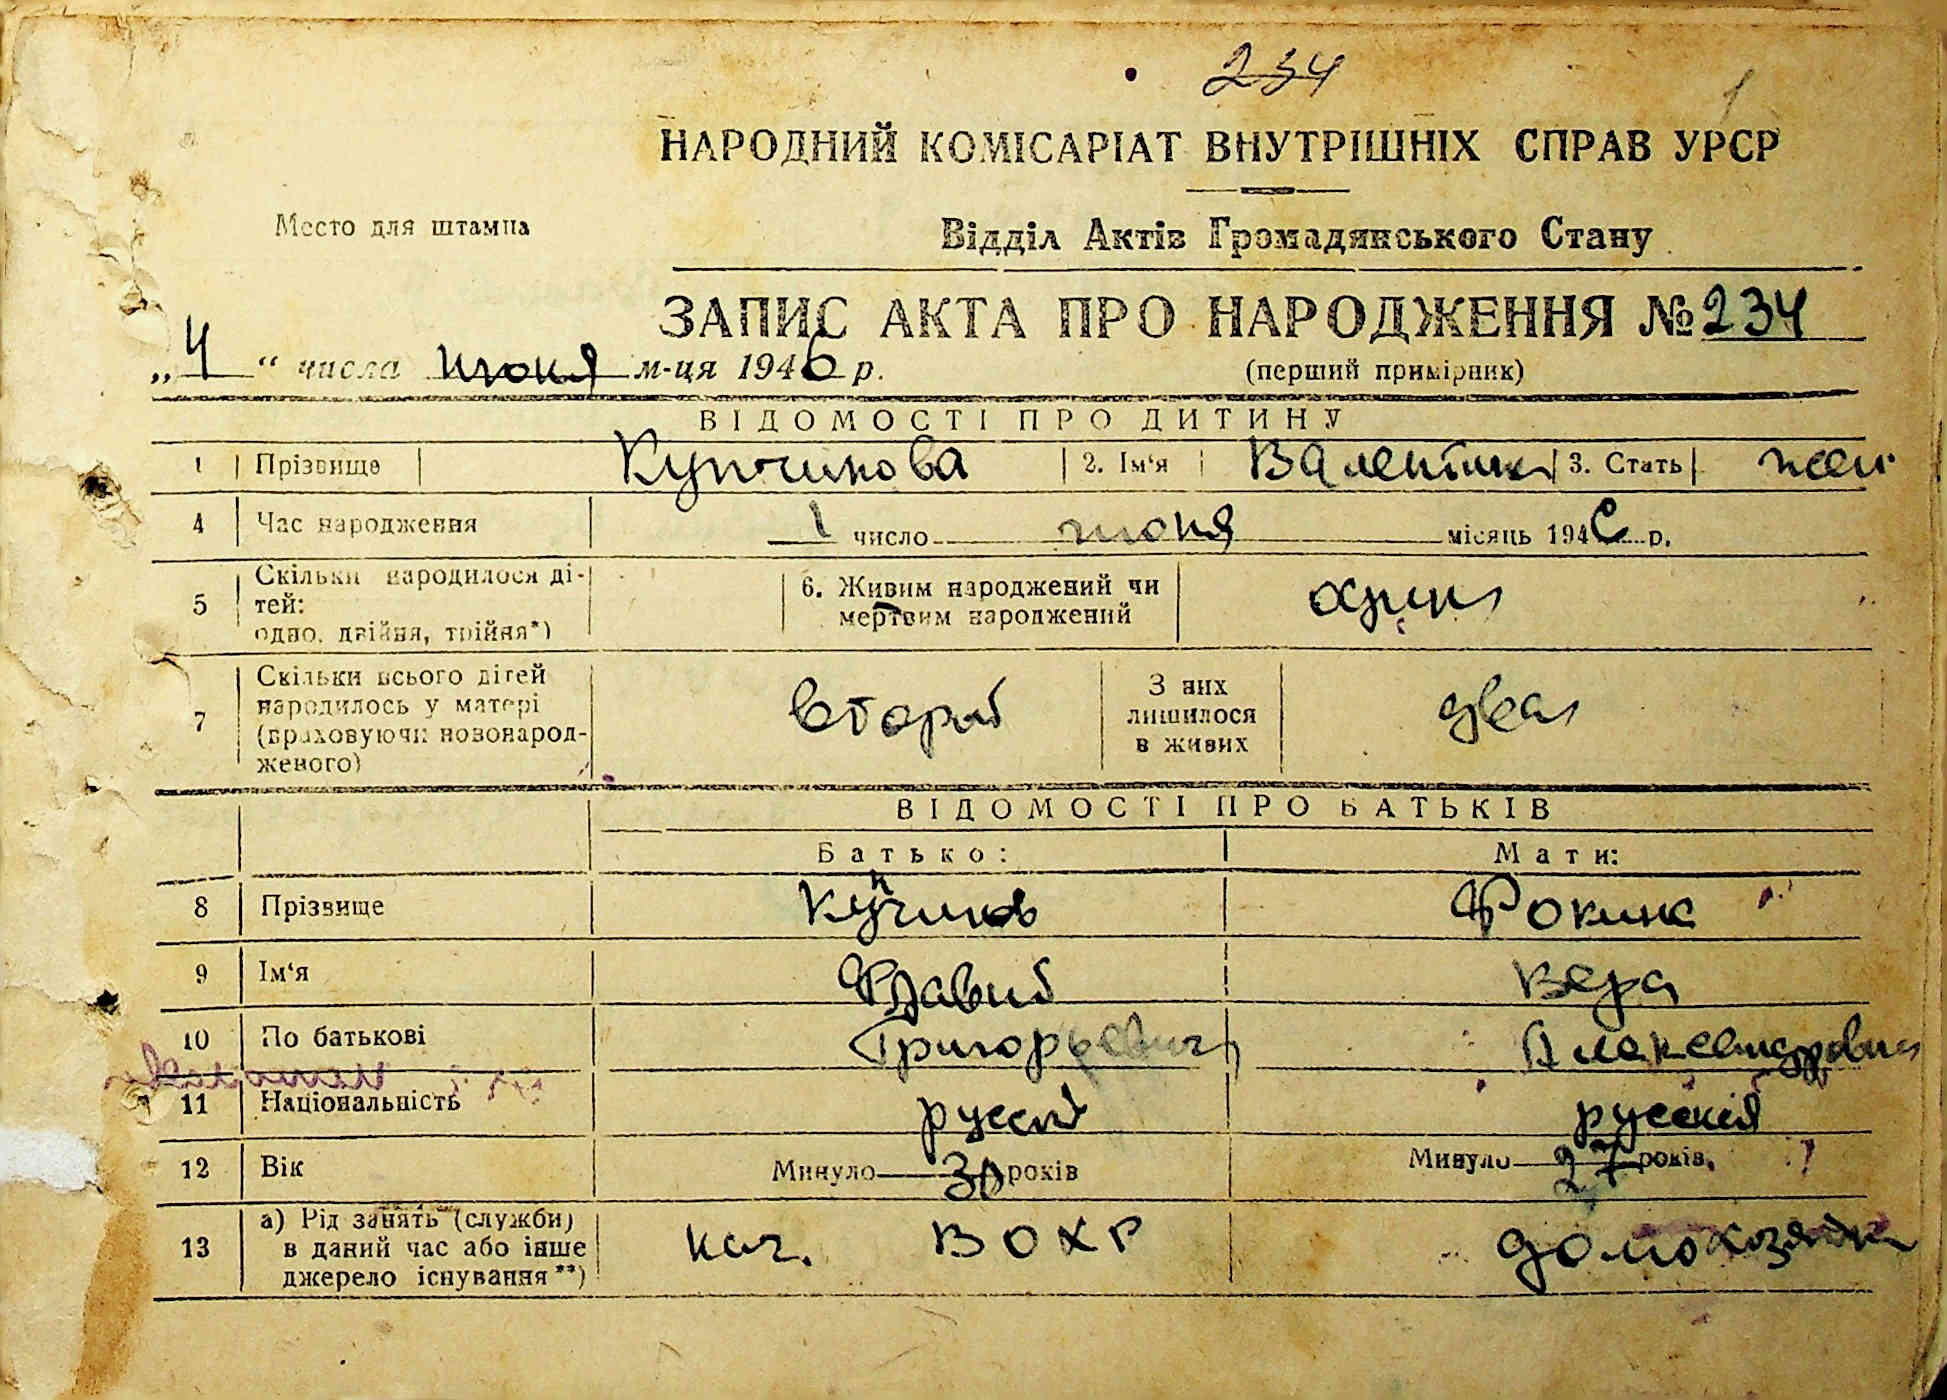 234
1
НАРОДНИЙ КОМІСАРІАТ ВНУТРІШНІХ СПРАВ УРСР
Место для штампа
Відділ Актів Громадянського Стану
ЗАПИС АКТА ПРО НАРОДЖЕННЯ № 234
„4“ числа июня м-ця 1946 р.
(перший примірник)
ВІДОМОСТІ ПРО ДИТИНУ
1 Прізвище Купчинова 2. Ім‘я Валентина 3. Стать жен
4 Час народження 1 число июня місяць 1946 р.
5 Скільки народилося ді-
тей:
одно, двійня, трійня*)
6. Живим народжений чи
мертвим народжений
7 Скільки всього дітей
народилось у матері
(враховуючи новонарод-
женого)
второй
З них
лишилося
в живих
два
ВІДОМОСТІ ПРО БАТЬКІВ
Батько: Мати:
8 Прізвище Купчинов Фокина
9 Ім‘я Вера
10 По батькові Григорьевич Александровна
11 Національність русский русская
12 Вік Минуло 30 років Минуло 27 років.
13 а) Рід занять (служби)
в даний час або інше
джерело існування**)
нач. ВОХР домохозяйка